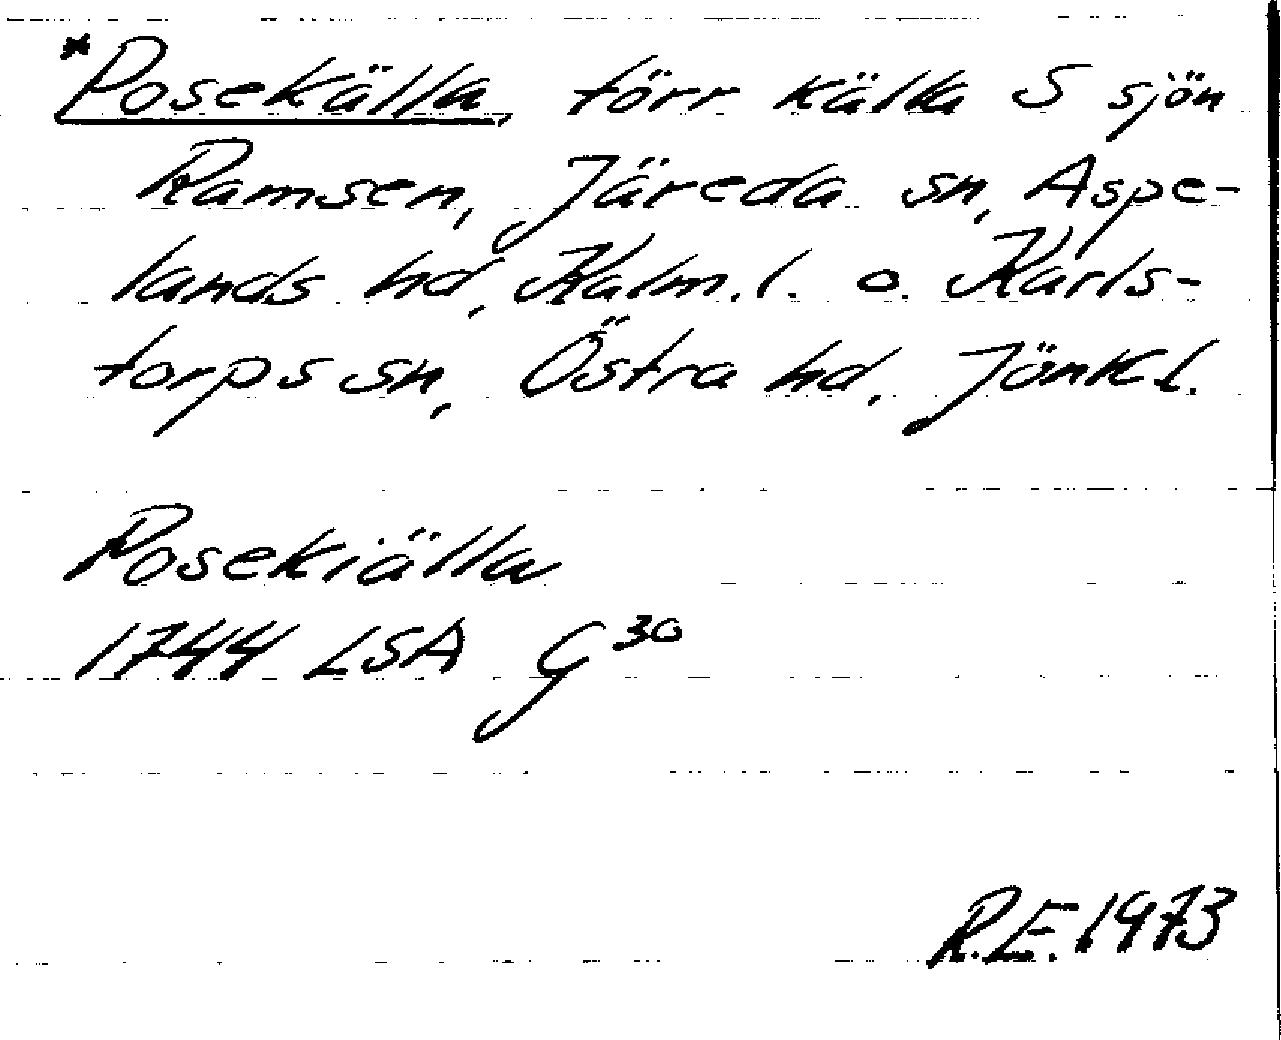 *Posekälla, förr källa S sjön
Ramsen, Järeda sn, Aspe-
lands hd, Kalm. l. o. Karls-
torps sn, Östra hd, Jönk l.
Posekiälla
1744 LSA G 30
R.E. 1973